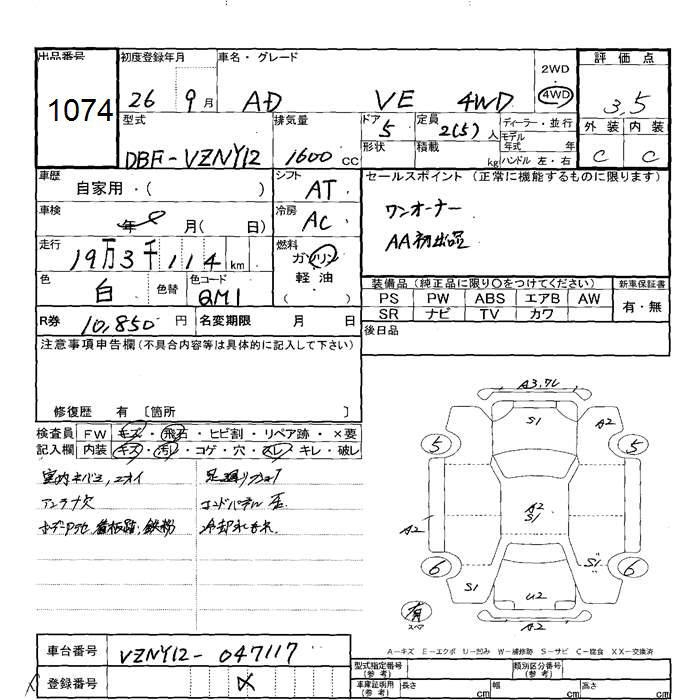 出品番号 初度登録年月 車名・グレード 2WD 4WD 評価点
1074 26 9月 AD VE 4WD 3.5
型式 排気量 ドア 5 定員 2(5)人 ディーラー・並行 外装 内装
DBF-VZNY12 1600cc 形状 積載 kg モデル年式 年 ハンドル 左・右 C C
車歴 自家用・( ) シフト AT セールスポイント (正常に機能するものに限ります)
車検 年 月( 日) 冷房 AC ワンオーナー
走行 19万3千114km 燃料 ガソリン 軽油 ( ) AA初出品
色 白 色替 色コード QM1 装備品(純正品に限り○をつけてください) 新車保証書
PS PW ABS エアB AW 有・無
SR ナビ TV カワ
R券 10,850円 名変期限 月 日 後日品
注意事項申告欄(不具合内容等は具体的に記入して下さい)
修復歴 有 〔箇所 〕
検査員 FW キズ・飛石・ヒビ割・リペア跡・×要
記入欄 内装 キズ・汚レ・コゲ・穴・スレ・キレ・破レ
アンテナ欠
A3,7L
S1 A2
5 5
A2
S1
A2 S1
6 6
S1 U2
有
スペア A2
A-キズ E-エクボ U-凹み W-補修跡 S-サビ C-腐食 XX-交換済
車台番号 VZNY12-047117
登録番号
型式指定番号(参考) 類別区分番号(参考)
車庫証明用(参考) 長さ cm 幅 cm 高さ cm